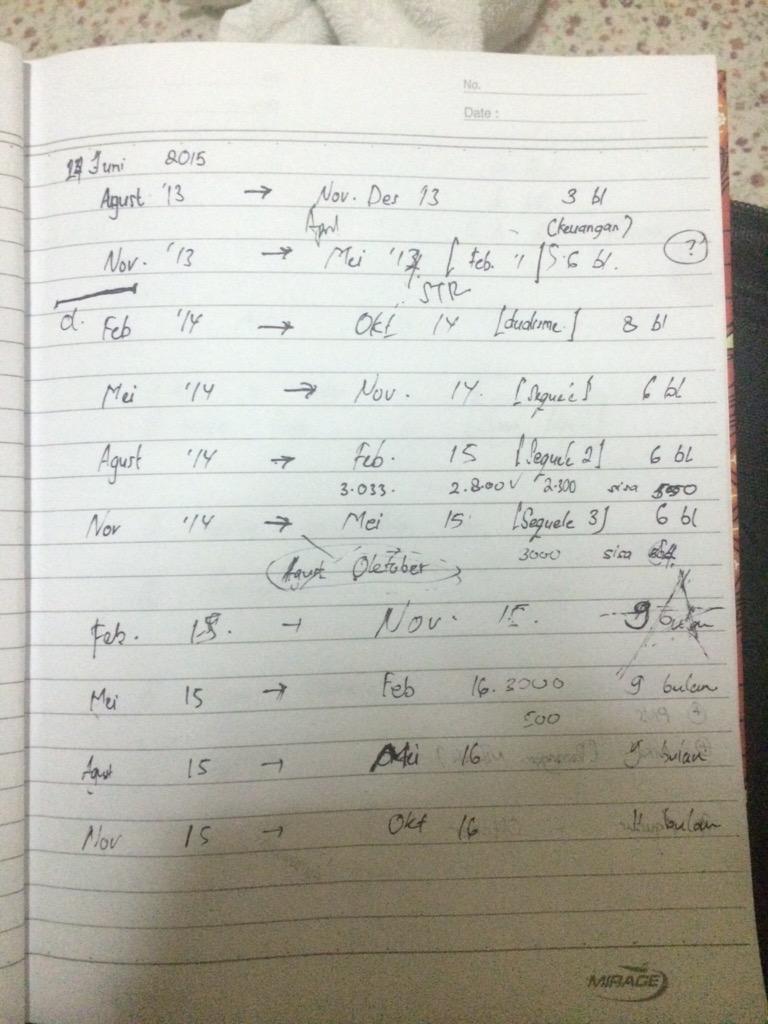 No.
Date :
Juni 2015
Agust '13 → Nov. Des 13 3 bl
April (keuangan)
Nov. '13 → Mei '13 [Feb. ] 5-6 bl. (?)
STR
d. Feb '14 → Okt 14 [dualisme] 8 bl
Mei '14 → Nov. 14. 6 bl
Agust '14 → Feb. 15 [Sequele 2] 6 bl
3.033. 2.800 2.300 sisa
Nov '14 → Mei 15 [Sequele 3] 6 bl
Agust Oktober 3000 sisa
Feb. 15. → Nov. 15. 9 bulan
Mei 15 → Feb 16. 3000 9 bulan
500
Agust 15 → Mei 16 9 bulan
Nov 15 → Okt 16 11 bulan
MIRAGE